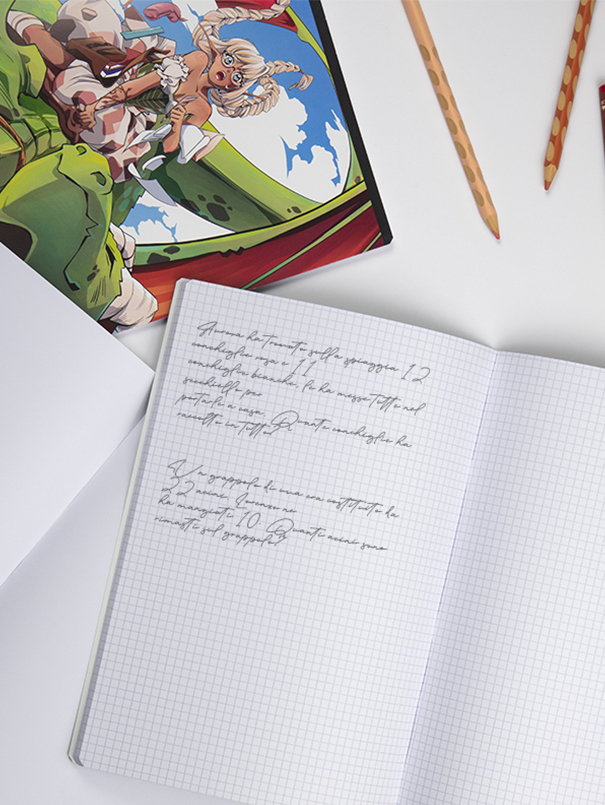 Aurora ha trovato sulla spiaggia 12
conchiglie rosa e 11
conchiglie bianche, le ha messe tutte nel
secchiello per
portarle a casa. Quante conchiglie ha
raccolto in tutto?
Un grappolo di uva era costituito da
22 acini. Lorenzo ne
ha mangiati 10. Quanti acini sono
rimasti sul grappolo?